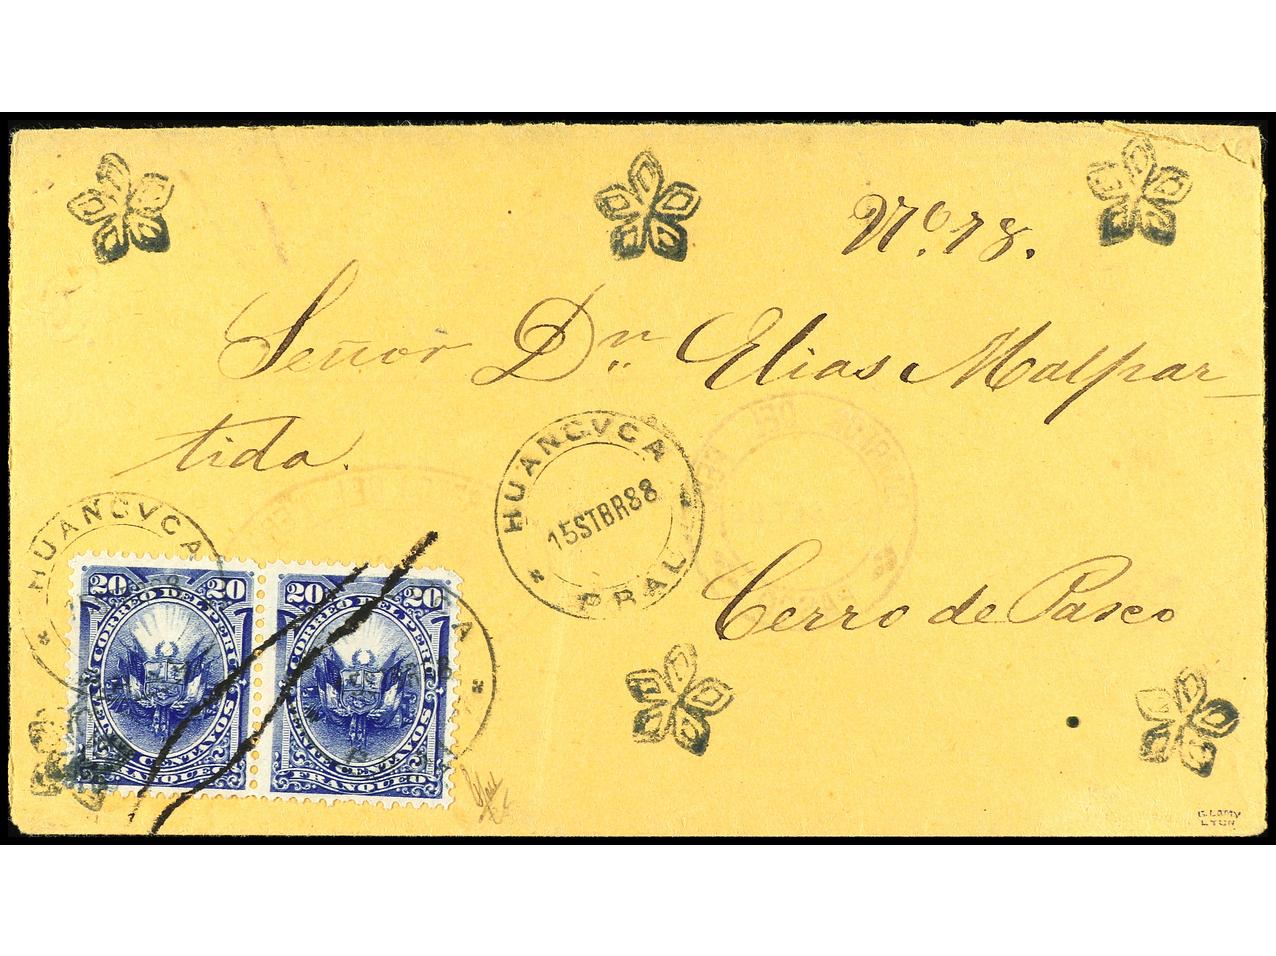 No. 18.
Señor Dn Elias Malpar-
tida.
HUANCVCA
15STBR88
PRAL
Cerro de Pasco
HUANCVCA
20 20
CORREO DEL PERU
VEINTE CENTAVOS
FRANQUEO
20 20
CORREO DEL PERU
VEINTE CENTAVOS
FRANQUEO
G. LAMY
LYON